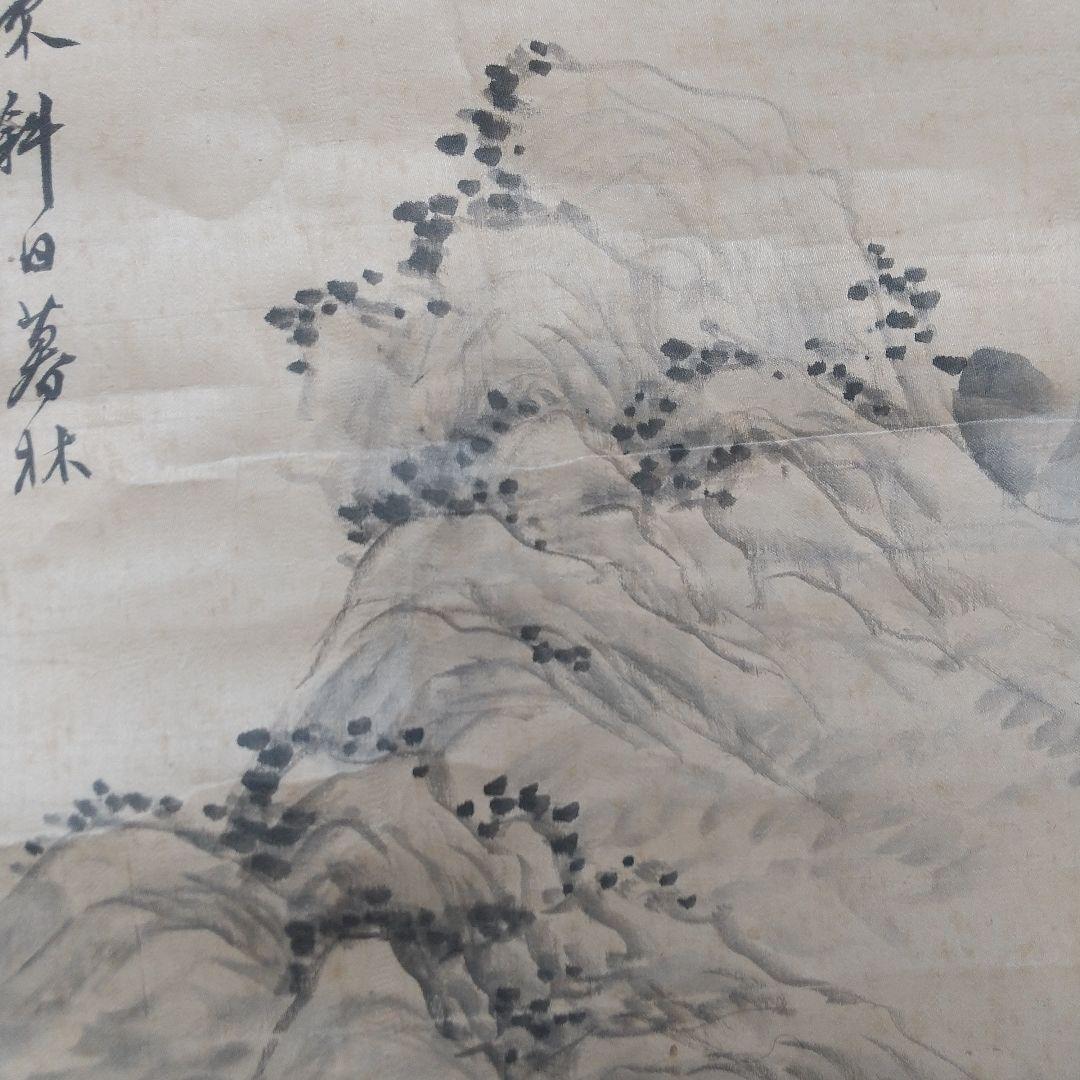 斜日暮林